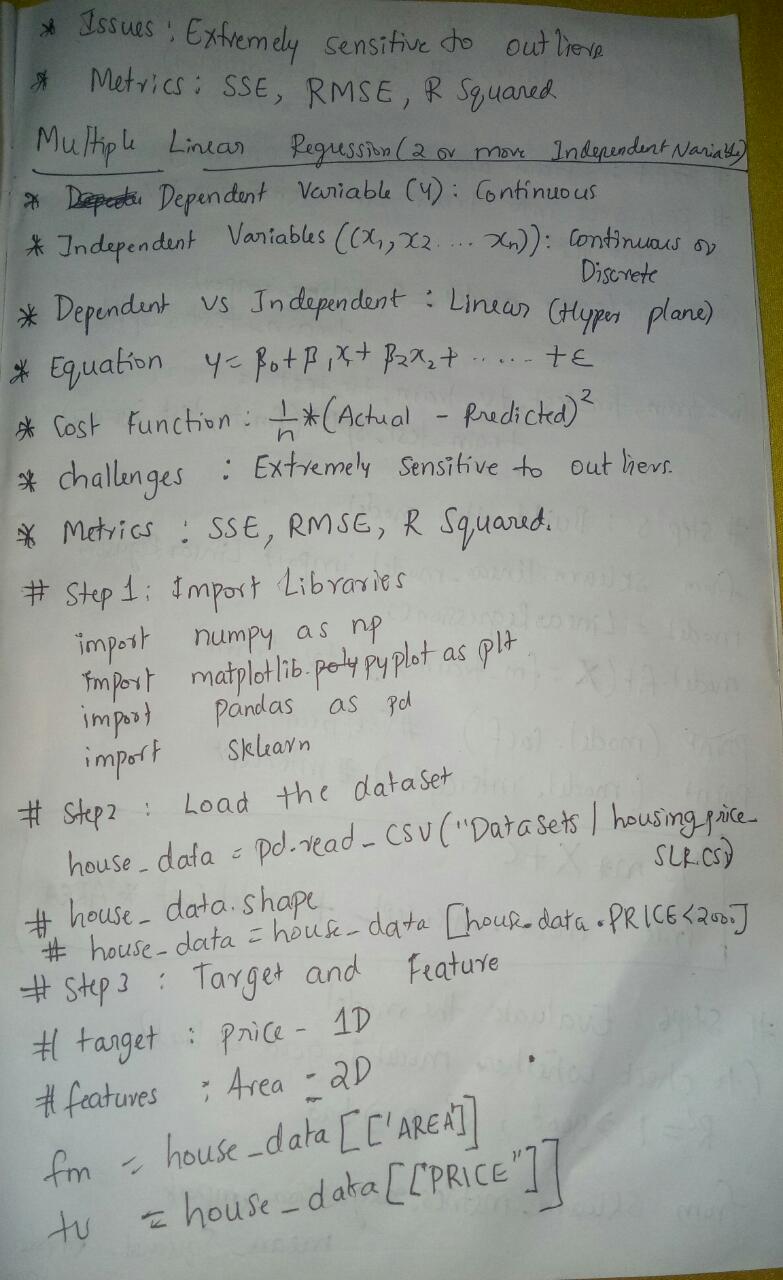 * Issues : Extremely sensitive to outliers
* Metrics : SSE, RMSE, R Squared
Multiple Linear Regression (2 or more Independent Variable)
* Dependent Variable (y) : Continuous
* Independent Variables ((x1, x2 .... xn)) : Continuous or
Discrete
* Dependent vs Independent : Linear (Hyper plane)
* Equation y = β0 + β1x1 + β2x2 + ...... + ε
* Cost Function : 1/n * (Actual - Predicted)²
* challenges : Extremely Sensitive to outliers.
* Metrics : SSE, RMSE, R Squared.
# Step 1 : Import Libraries
import numpy as np
import matplotlib.pyplot as plt
import pandas as pd
import sklearn
# Step2 : Load the dataset
house_data = pd.read_csv("Datasets/housingprice_
SLR.CSV)
# house_data.shape
# house_data = house_data [house.data.PRICE<2000]
# Step 3 : Target and Feature
# target : price - 1D
# features : Area = 2D
fm = house_data [['AREA']]
tv = house_data [["PRICE"]]